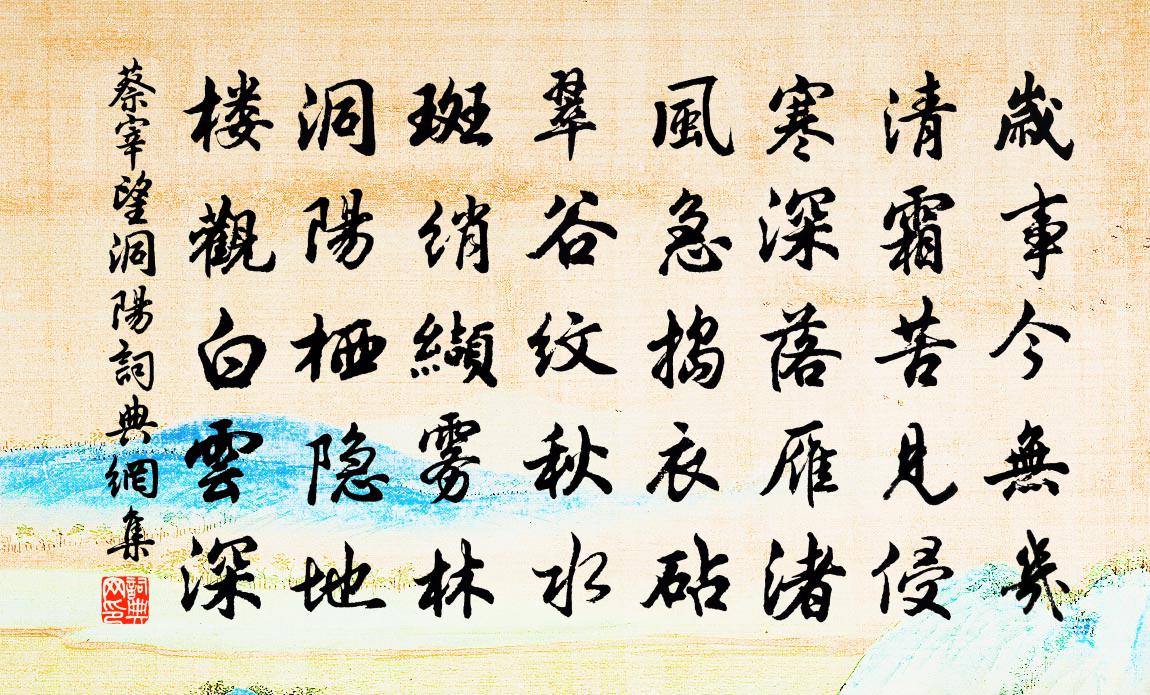 歲事今無幾
清霜苦見侵
寒深落雁渚
風急搗衣砧
翠谷紋秋水
斑綃纈雾林
洞陽栖隐地
楼觀白雲深
蔡宰望洞陽詞典網集
詞典